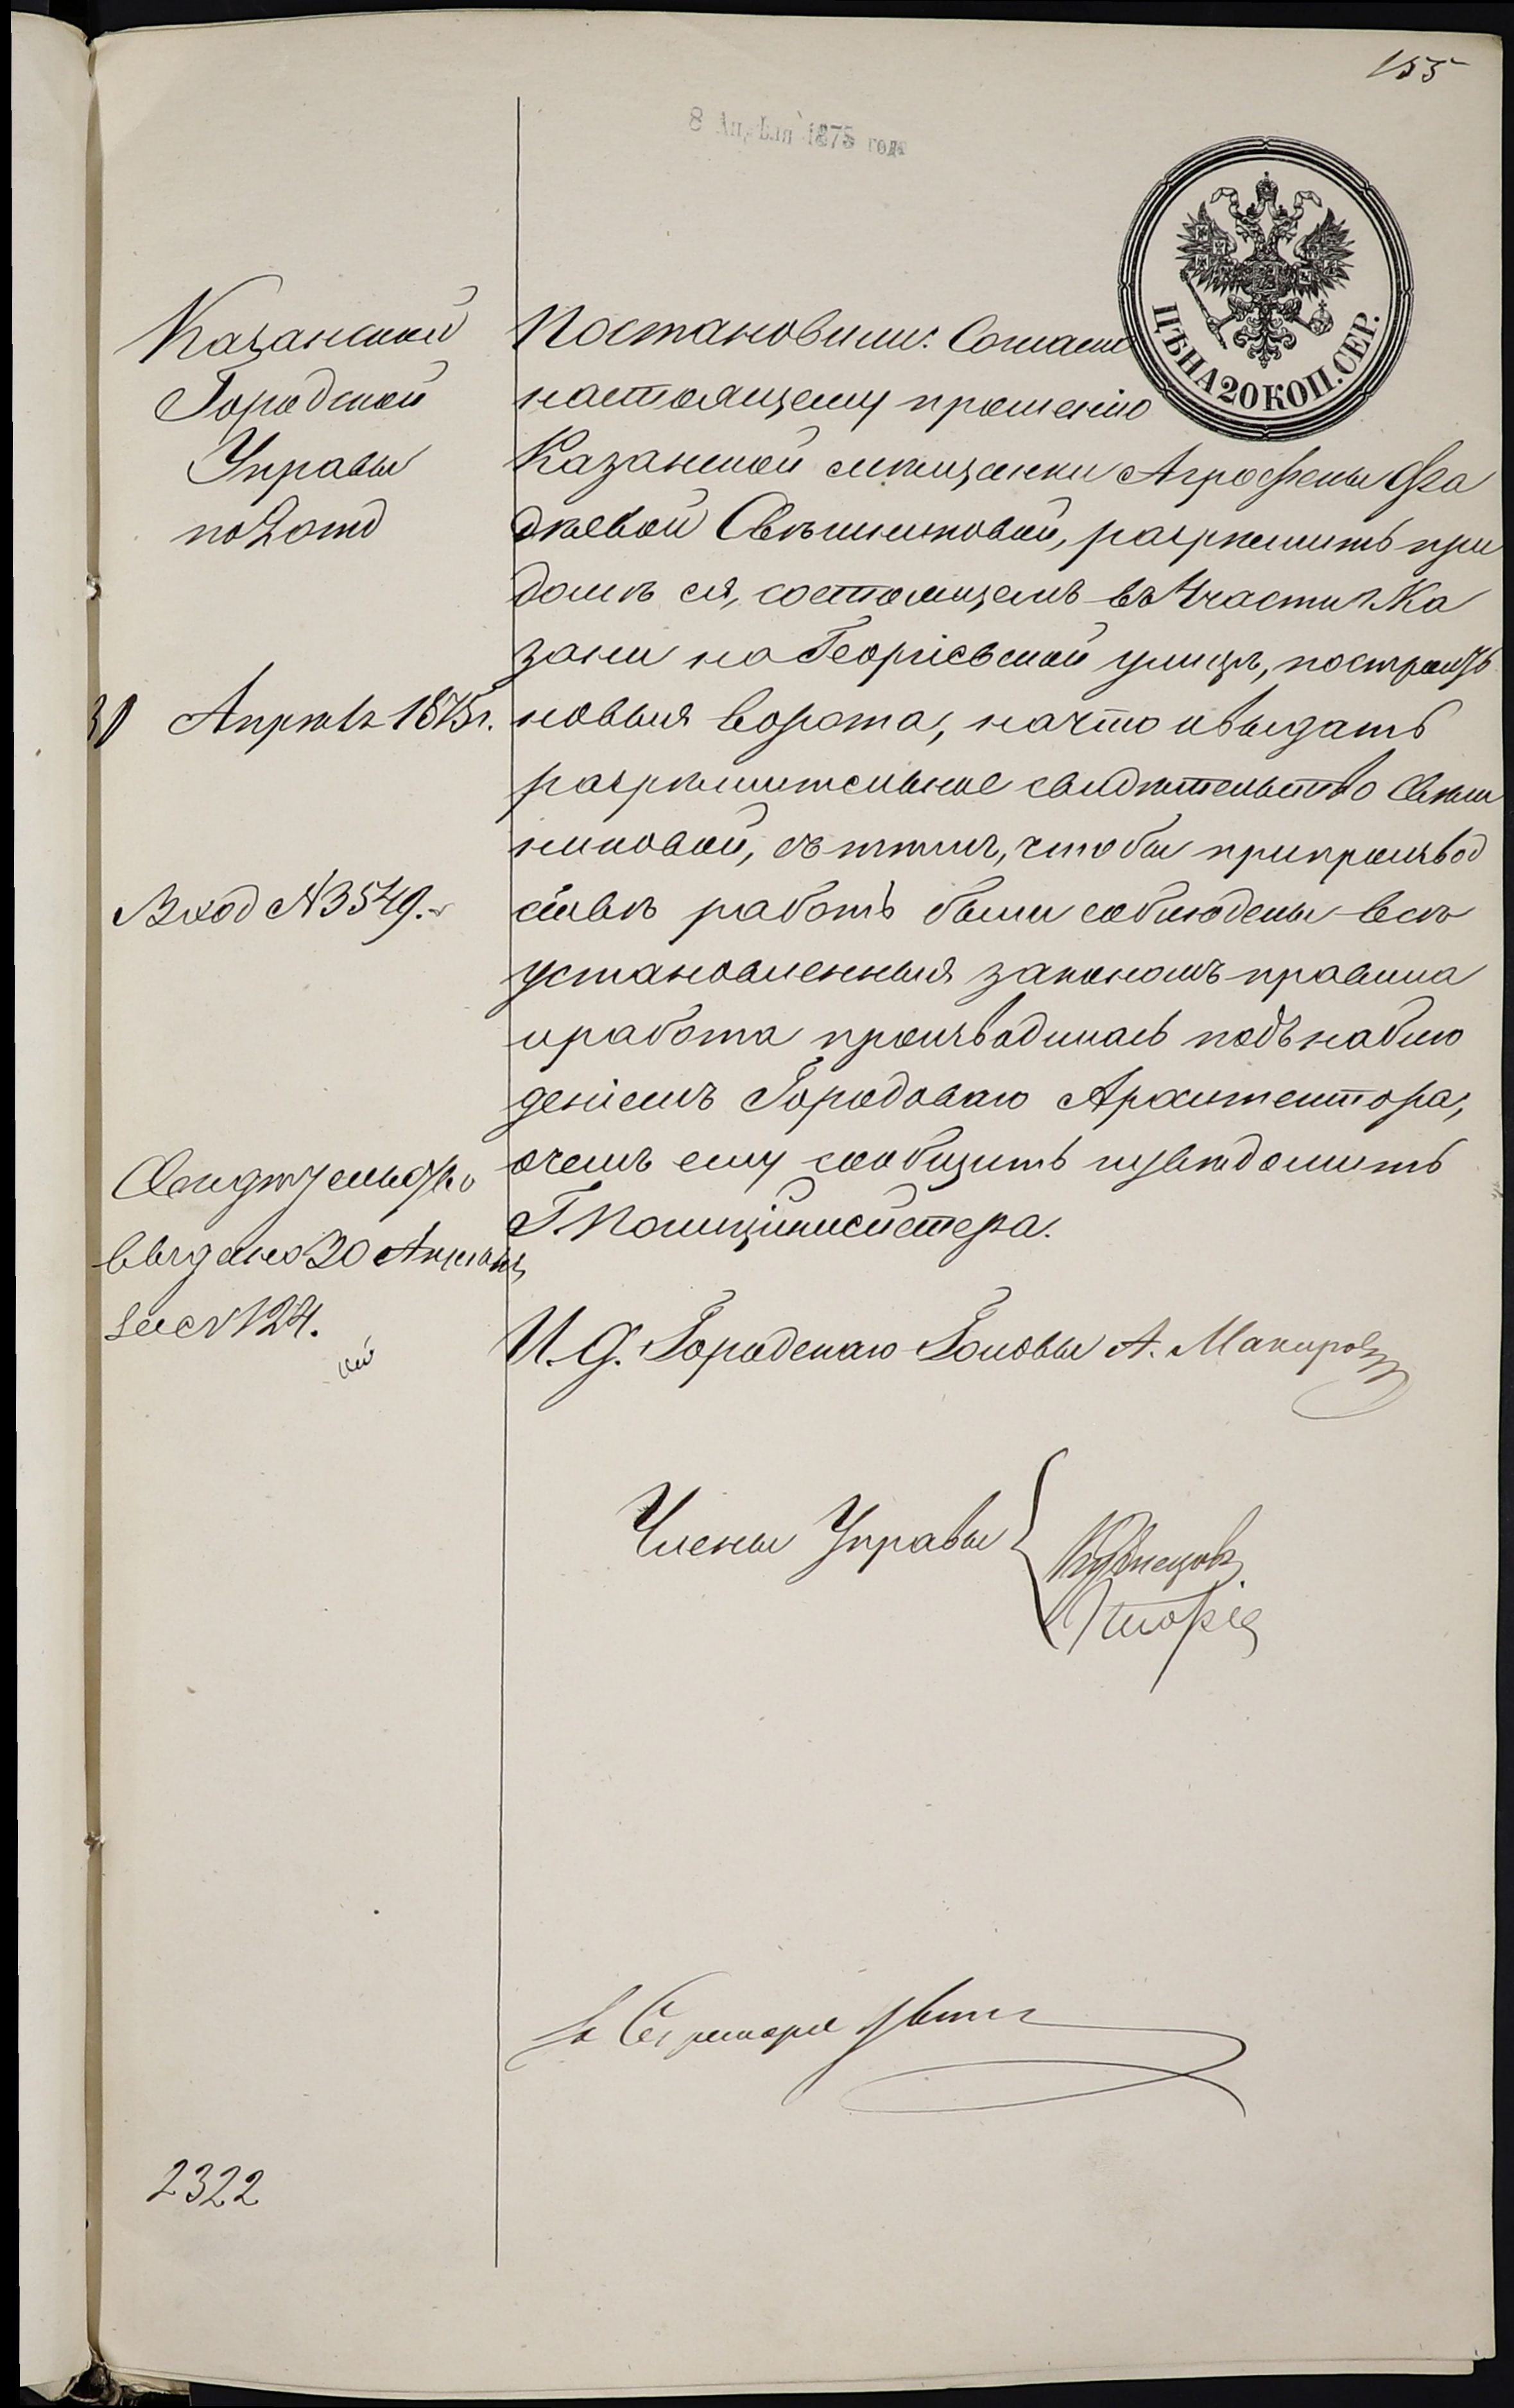 155
8 Апрѣля 1875 года
ЦѢНА 20 КОП. СЕР.
Казанской
Городской
Управы
по 2 отд
Апрѣля 1875 г.
Вход № 3549.
Свидѣтельство
выдано 30 Апрѣля
за № 124.
2322
Постановили: Согласно
настоящему прошенію
Казанской мѣщанки Агрофены Фа
дѣевой Свѣшниковой, разрѣшить при
домѣ ея, состоящемъ въ 4 части г. Ка
зани на Георгіевской улицѣ, построить
новыя ворота, на что и выдать
разрѣшительное свидѣтельство Свѣш
никовой, съ тѣмъ, чтобы при производ
ствѣ работъ были соблюдены всѣ
установленныя закономъ правила
и работа производилась подъ наблю
деніемъ Городоваго Архитектора,
о чемъ ему сообщить и увѣдомить
Г. Полиціймейстера.
И. д. Городскаго Головы А. Макаровъ
Члены Управы
Кузнецовъ
За Секретаря